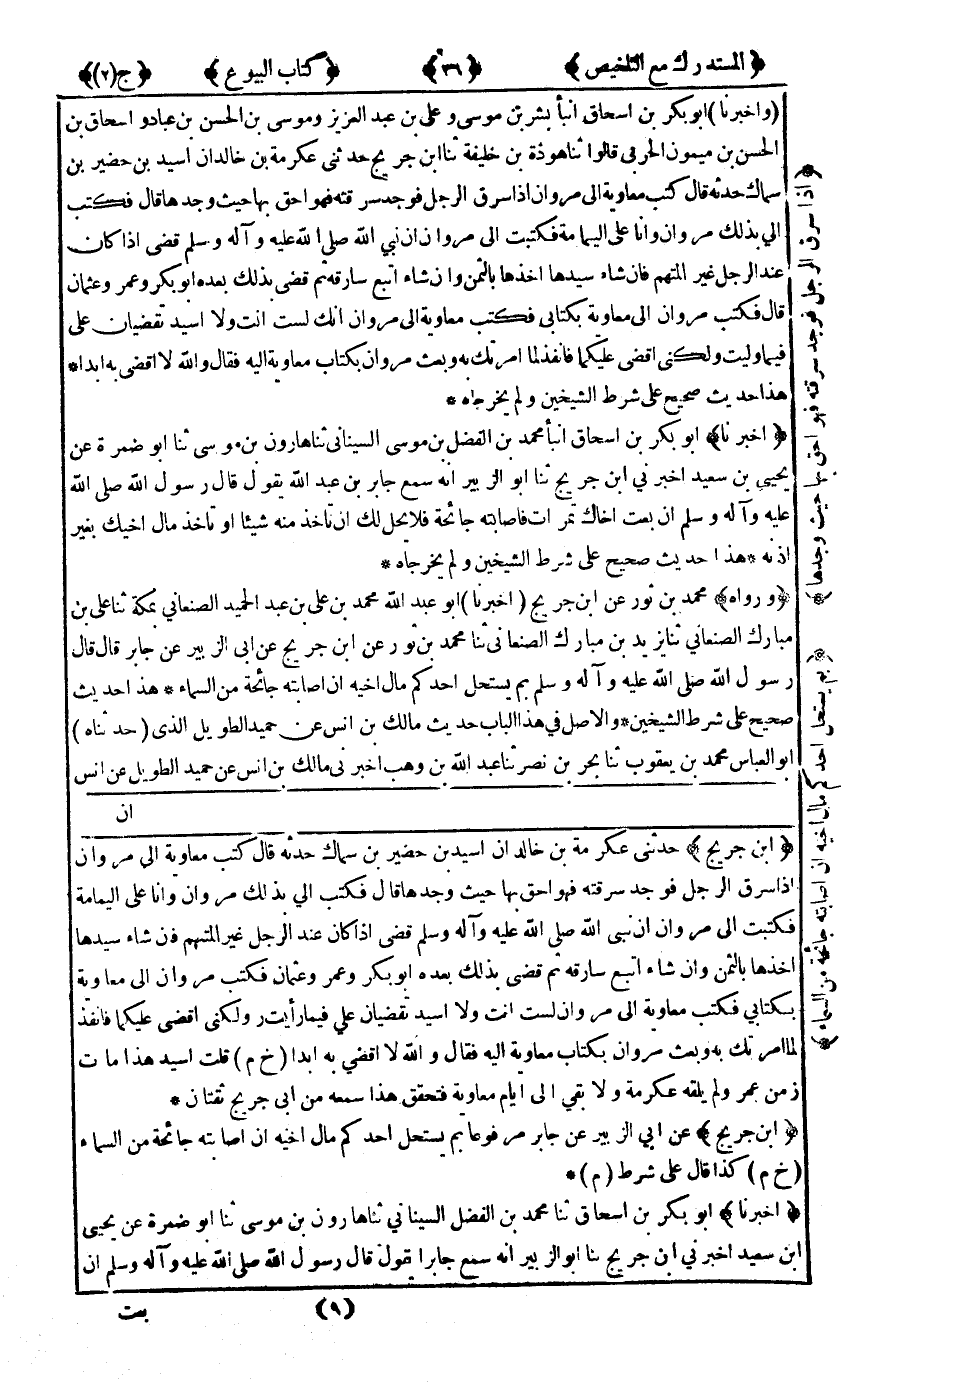 ﴿ المستدرك مع التلخيص ﴾ ﴿ ٣٦ ﴾ ﴿ كتاب البيوع ﴾ ﴿ ج (٢) ﴾
(واخبرنا) ابوبكر بن اسحاق انبأ بشر بن موسى وعلى بن عبد العزيز وموسى بن الحسن بن عباد واسحاق بن
الحسن بن ميمون الحرفى قالوا ثنا هوذة بن خليفة ثنا ابن جريج حدثنى عكرمة بن خالد ان اسيد بن حضير بن
سماك حدثه قال كتب معاوية الى مروان اذا سرق الرجل فوجد سرقته فهو احق بها حيث وجدها قال فكتب
الي بذلك مروان وانا على اليمامة فكتبت الى مروان ان نبي الله صلى الله عليه وآله وسلم قضى اذا كان
عند الرجل غير المتهم فان شاء سيدها اخذها بالثمن وان شاء اتبع سارقه ثم قضى بذلك بعده ابوبكر وعمر وعثمان
قال فكتب مروان الى معاوية بكتابى فكتب معاوية الى مروان انك لست انت ولا اسيد تقضيان على
فيما وليت ولكنى اقضى عليكما فانفذ لما امرتك به وبعث مروان بكتاب معاوية اليه فقال والله لا اقضى به ابدا *
هذا حديث صحيح على شرط الشيخين ولم يخرجاه *
﴿ اخبرنا ﴾ ابو بكر بن اسحاق انبأ محمد بن الفضل بن موسى السينانى ثنا هارون بن موسى ثنا ابو ضمرة عن
يحيى بن سعيد اخبرني ابن جريج ثنا ابو الزبير انه سمع جابر بن عبد الله يقول قال رسول الله صلى الله
عليه وآله وسلم ان بعت اخاك تمرات فاصابته جائحة فلا يحل لك ان تأخذ منه شيئا او تأخذ مال اخيك بغير
اذنه * هذا حديث صحيح على شرط الشيخين ولم يخرجاه *
﴿ ورواه ﴾ محمد بن ثور عن ابن جريج (اخبرنا) ابو عبد الله محمد بن على بن عبد الحميد الصنعاني بمكة ثنا على بن
مبارك الصنعاني ثنا يزيد بن مبارك الصنعانى ثنا محمد بن ثور عن ابن جريج عن ابى الزبير عن جابر قال قال
رسول الله صلى الله عليه وآله وسلم بم يستحل احدكم مال اخيه ان اصابته جائحة من السماء * هذا حديث
صحيح على شرط الشيخين * والاصل في هذا الباب حديث مالك بن انس عن حميد الطويل الذى (حدثناه)
ابو العباس محمد بن يعقوب ثنا بحر بن نصر ثنا عبد الله بن وهب اخبرنى مالك بن انس عن حميد الطويل عن انس
ان
﴿ ابن جريج ﴾ حدثنى عكرمة بن خالد ان اسيد بن حضير بن سماك حدثه قال كتب معاوية الى مروان
اذا سرق الرجل فوجد سرقته فهو احق بها حيث وجدها قال فكتب الي بذلك مروان وانا على اليمامة
فكتبت الى مروان ان نبى الله صلى الله عليه وآله وسلم قضى اذا كان عند الرجل غير المتهم فان شاء سيدها
اخذها بالثمن وان شاء اتبع سارقه ثم قضى بذلك بعده ابوبكر وعمر وعثمان فكتب مروان الى معاوية
بكتابي فكتب معاوية الى مروان لست انت ولا اسيد تقضيان علي فيما رأيت ولكنى اقضى عليكما فانفذ
لما امرتك به وبعث مروان بكتاب معاوية اليه فقال والله لا اقضي به ابدا (خ م) قلت اسيد هذا مات
زمن عمر ولم يلقه عكرمة ولا بقي الى ايام معاوية فتحقق هذا سمعه من ابى جريج ثقتان *
﴿ ابن جريج ﴾ عن ابي الزبير عن جابر مرفوعا بم يستحل احدكم مال اخيه ان اصابته جائحة من السماء
(خ م) كذا قال على شرط (م) *
﴿ اخبرنا ﴾ ابو بكر بن اسحاق ثنا محمد بن الفضل السيناني ثنا هارون بن موسى ثنا ابو ضمرة عن يحيى
ابن سعيد اخبرني ابن جريج ثنا ابو الزبير انه سمع جابرا يقول قال رسول الله صلى الله عليه وآله وسلم ان
(٩) بعت
﴿ اذا سرق الرجل فوجد سرقته فهو احق بها حيث وجدها ﴾
﴿ بم يستحل احدكم مال اخيه ان اصابته جائحة من السماء ﴾